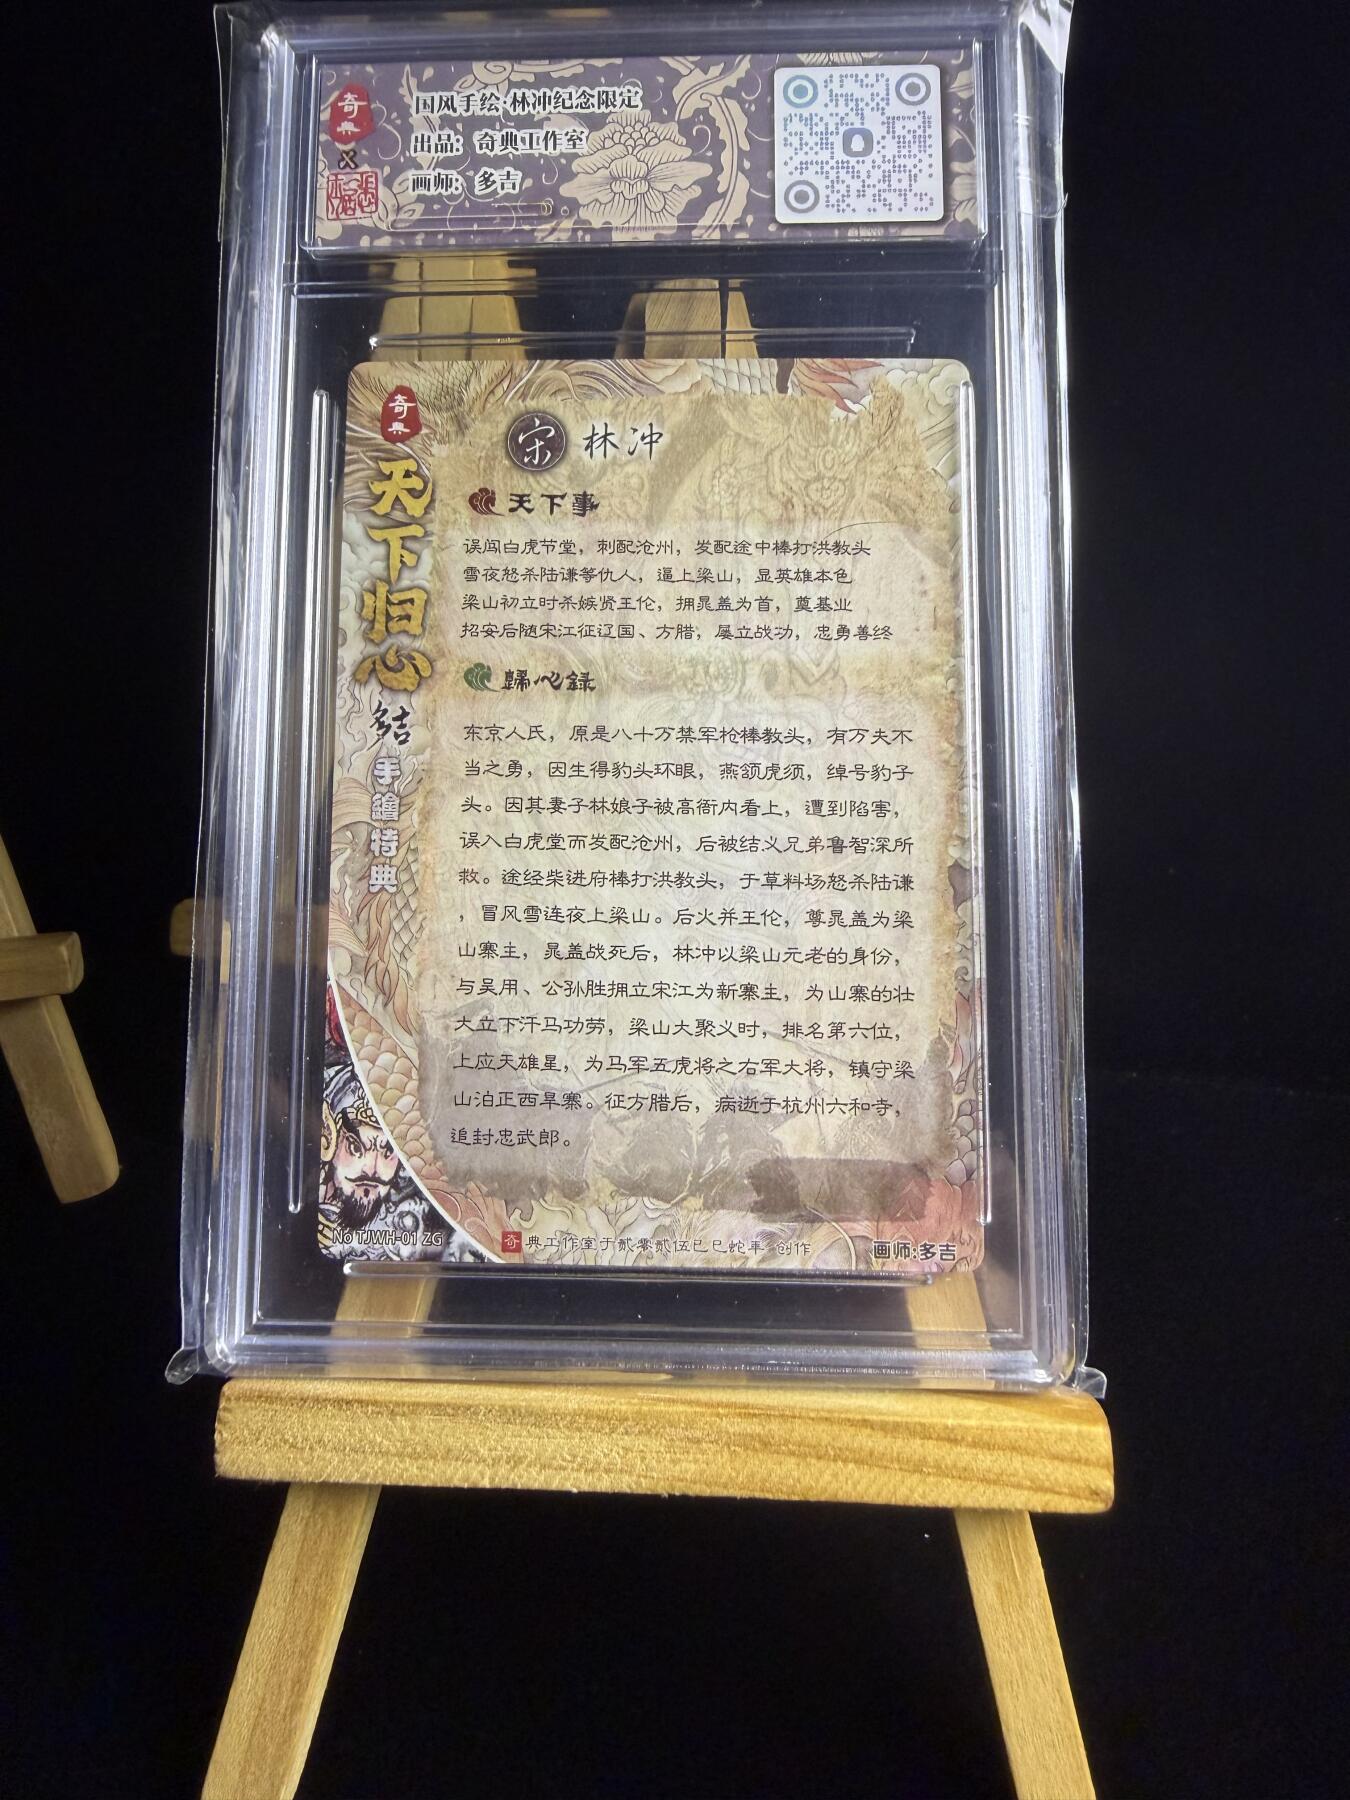 奇典
×
国风手绘·林冲纪念限定
出品：奇典工作室
画师：多吉
奇典
天下归心
多吉
手繪特典
宋 林冲
天下事
误闯白虎节堂，刺配沧州，发配途中棒打洪教头
雪夜怒杀陆谦等仇人，逼上梁山，显英雄本色
梁山初立时杀嫉贤王伦，拥晁盖为首，奠基业
招安后随宋江征辽国、方腊，屡立战功，忠勇善终
歸心録
东京人氏，原是八十万禁军枪棒教头，有万夫不
当之勇，因生得豹头环眼，燕颔虎须，绰号豹子
头。因其妻子林娘子被高衙内看上，遭到陷害，
误入白虎堂而发配沧州，后被结义兄弟鲁智深所
救。途经柴进府棒打洪教头，于草料场怒杀陆谦
，冒风雪连夜上梁山。后火并王伦，尊晁盖为梁
山寨主，晁盖战死后，林冲以梁山元老的身份，
与吴用、公孙胜拥立宋江为新寨主，为山寨的壮
大立下汗马功劳，梁山大聚义时，排名第六位，
上应天雄星，为马军五虎将之右军大将，镇守梁
山泊正西旱寨。征方腊后，病逝于杭州六和寺，
追封忠武郎。
No TJWH-01 ZG
奇典工作室于贰零贰伍乙巳蛇年 创作
画师:多吉